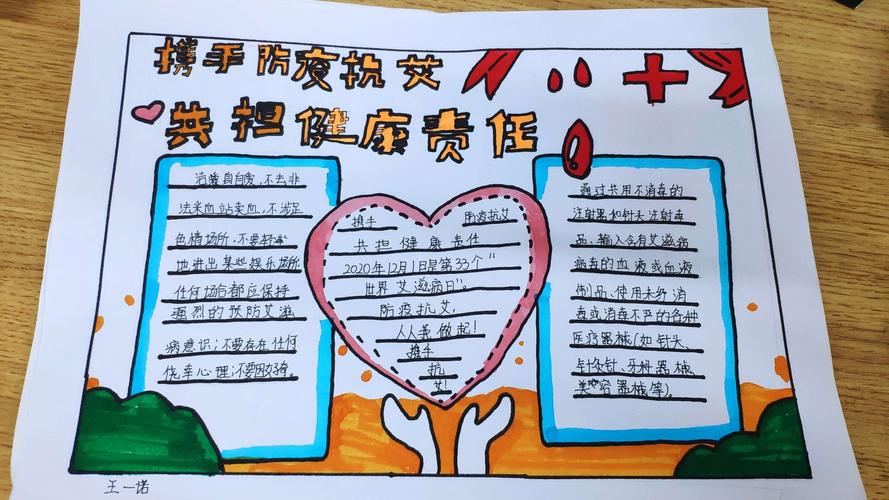 携手防疫抗艾
共担健康责任
洁身自爱,不去非
法采血站卖血,不涉足
色情场所,不要轻率
地进出某些娱乐场所
任何场合都应保持
强烈的预防艾滋
病意识;不要存在任何
侥幸心理;不要因好奇。
携手 防疫抗艾
共担健康责任
2020年12月1日是第33个“
世界艾滋病日”。
防疫抗艾,
从我做起!
携手
抗
艾!
通过共用不消毒的
注射器和针头注射毒
品、输入含有艾滋病
病毒的血液或血液
制品、使用未经消
毒或消毒不严的各种
医疗器械(如针头、
针灸针、牙科器械、
美容器械等)。
王一诺